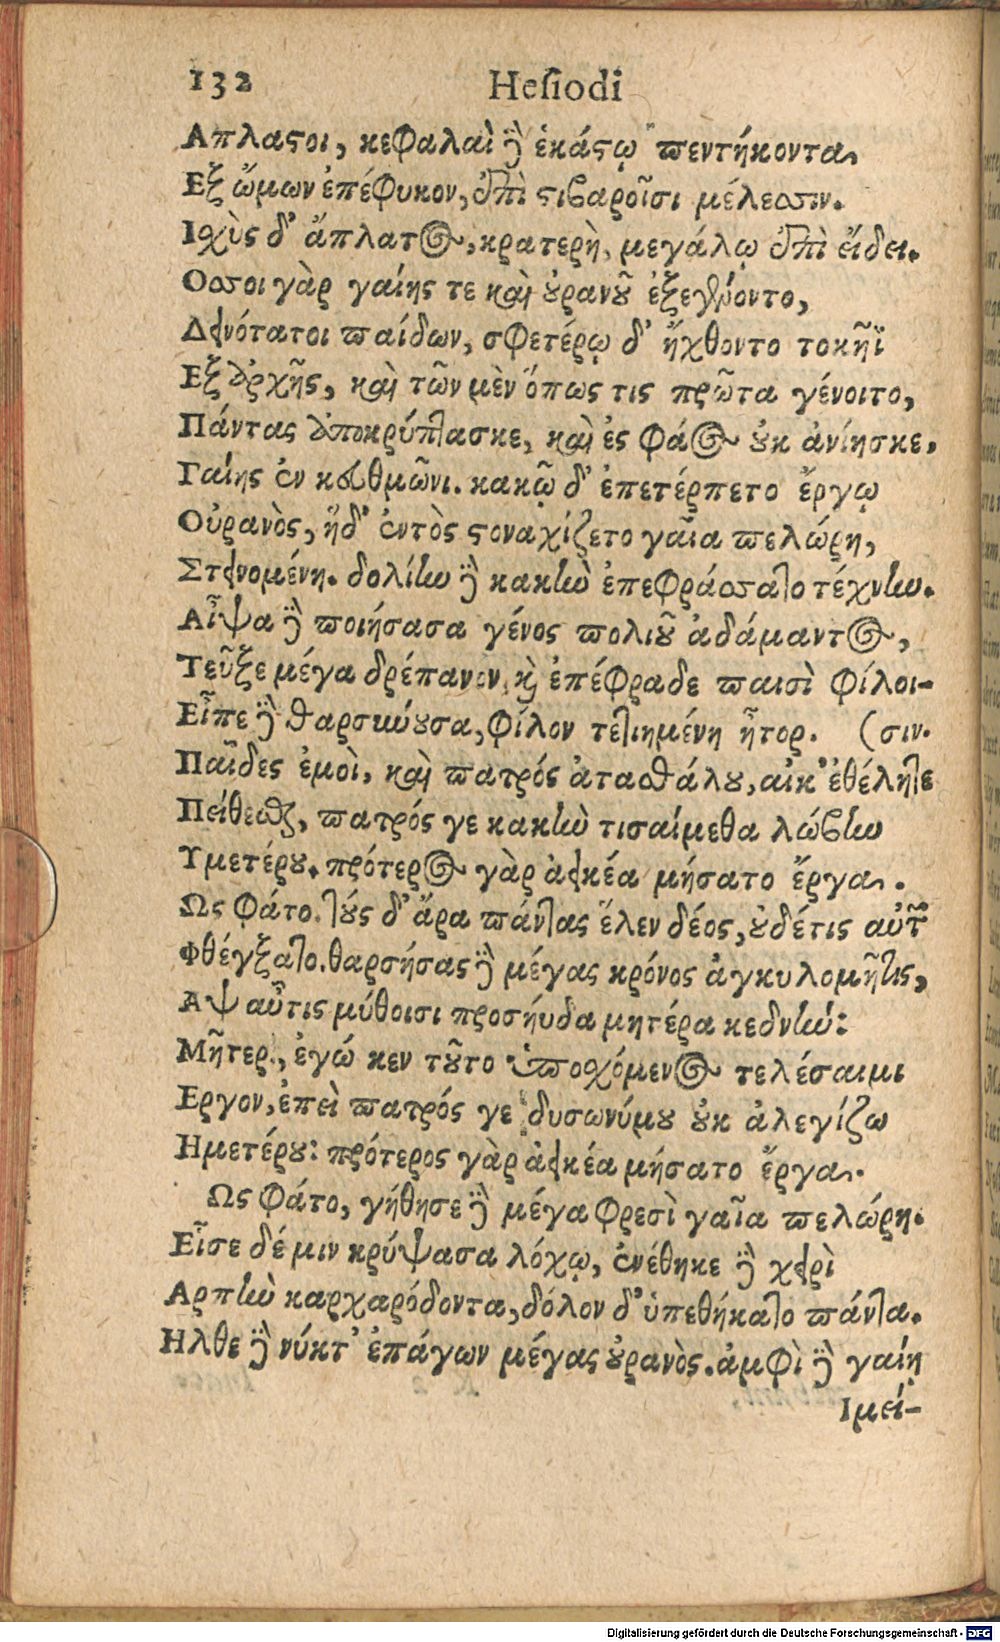 132 Hesiodi
Απλαστοι, κεφαλαὶ δὲ ἑκάστῳ πεντήκοντα
Εξ ὤμων ἐπέφυκον, ἐπὶ στιβαροῖσι μέλεσσιν.
Ισχὺς δ' ἄπλατος, κρατερὴ, μεγάλῳ ἐπὶ εἴδει.
Οσσοι γὰρ γαίης τε καὶ οὐρανοῦ ἐξεγένοντο,
Δεινότατοι παίδων, σφετέρῳ δ' ἤχθοντο τοκῆϊ
Εξ ἀρχῆς, καὶ τῶν μὲν ὅπως τις πρῶτα γένοιτο,
Πάντας ἀποκρύπτασκε, καὶ ἐς φάος οὐκ ἀνίησκε,
Γαίης ἐν κευθμῶνι. κακῷ δ' ἐπετέρπετο ἔργῳ
Οὐρανὸς, ἥδ' ἐντὸς στοναχίζετο γαῖα πελώρη,
Στεινομένη. δολίην δὲ κακὴν ἐπεφράσσατο τέχνην.
Αἶψα δὲ ποιήσασα γένος πολιοῦ ἀδάμαντος,
Τεῦξε μέγα δρέπανον, καὶ ἐπέφραδε παισὶ φίλοι-
Εἶπε δὲ θαρσύνουσα, φίλον τετιημένη ἦτορ. (σιν.
Παῖδες ἐμοὶ, καὶ πατρός ἀτασθάλου, αἴκ' ἐθέλητε
Πείθεσθαι, πατρός γε κακὴν τισαίμεθα λώβην
Υμετέρου. πρότερος γὰρ ἀεικέα μήσατο ἔργα.
Ως φάτο. τοὺς δ' ἄρα πάντας ἕλεν δέος, οὐδέτις αὐτῶν
Φθέγξατο. θαρσήσας δὲ μέγας κρόνος ἀγκυλομῆτις,
Αψ αὖτις μύθοισι προσηύδα μητέρα κεδνήν:
Μῆτερ, ἐγώ κεν τοῦτο ὑποσχόμενος τελέσαιμι
Εργον, ἐπεὶ πατρός γε δυσωνύμου οὐκ ἀλεγίζω
Ημετέρου: πρότερος γὰρ ἀεικέα μήσατο ἔργα.
Ως φάτο, γήθησε δὲ μέγα φρεσὶ γαῖα πελώρη.
Εἷσε δέ μιν κρύψασα λόχῳ, ἐνέθηκε δὲ χειρὶ
Αρπην καρχαρόδοντα, δόλον δ' ὑπεθήκατο πάντα.
Ηλθε δὲ νύκτ' ἐπάγων μέγας οὐρανὸς. ἀμφὶ δὲ γαίῃ
Ιμεί-
Digitalisierung gefördert durch die Deutsche Forschungsgemeinschaft - DFG